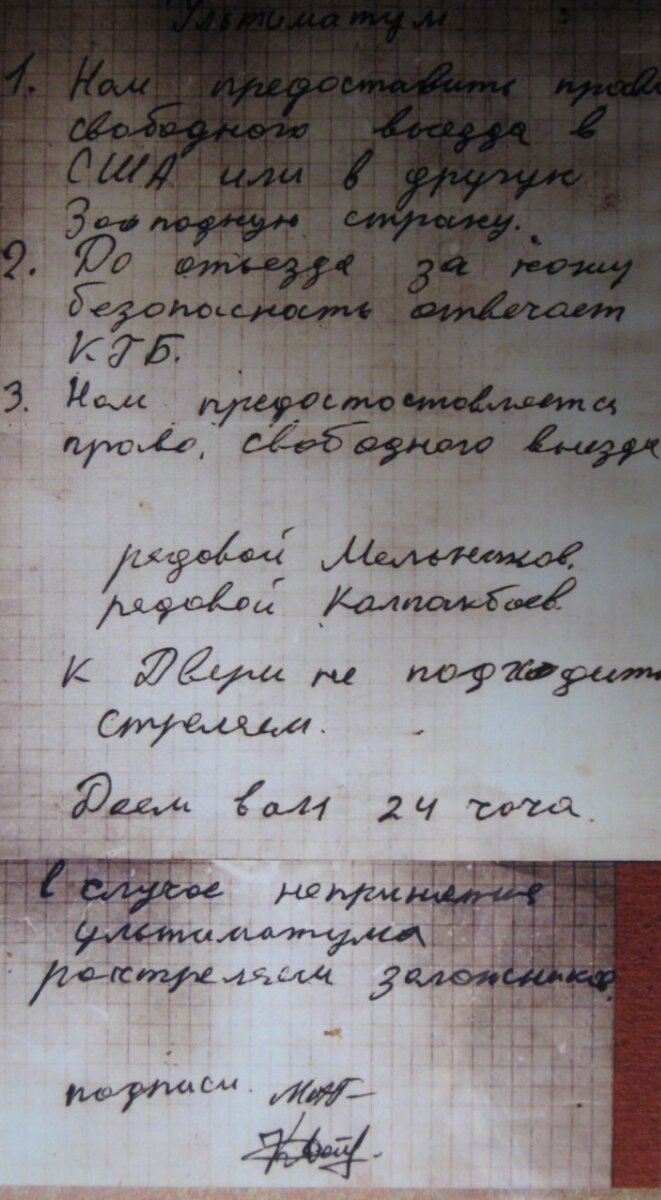 Ультиматум
1. Нам предоставить право
свободного выезда в
США или в другую
Западную страну.
2. До отъезда за нашу
безопасность отвечает
КГБ.
3. Нам предостоставляется
право, свободного выезда
рядовой Мельников.
рядовой Калпакбаев.
К Двери не подходить
стреляем.
Даем вам 24 часа.
в случае непринятия
ультиматума
расстреляем заложников.
подписи.